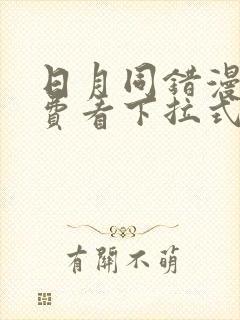 日月同错漫
费看下拉式
有關不萌